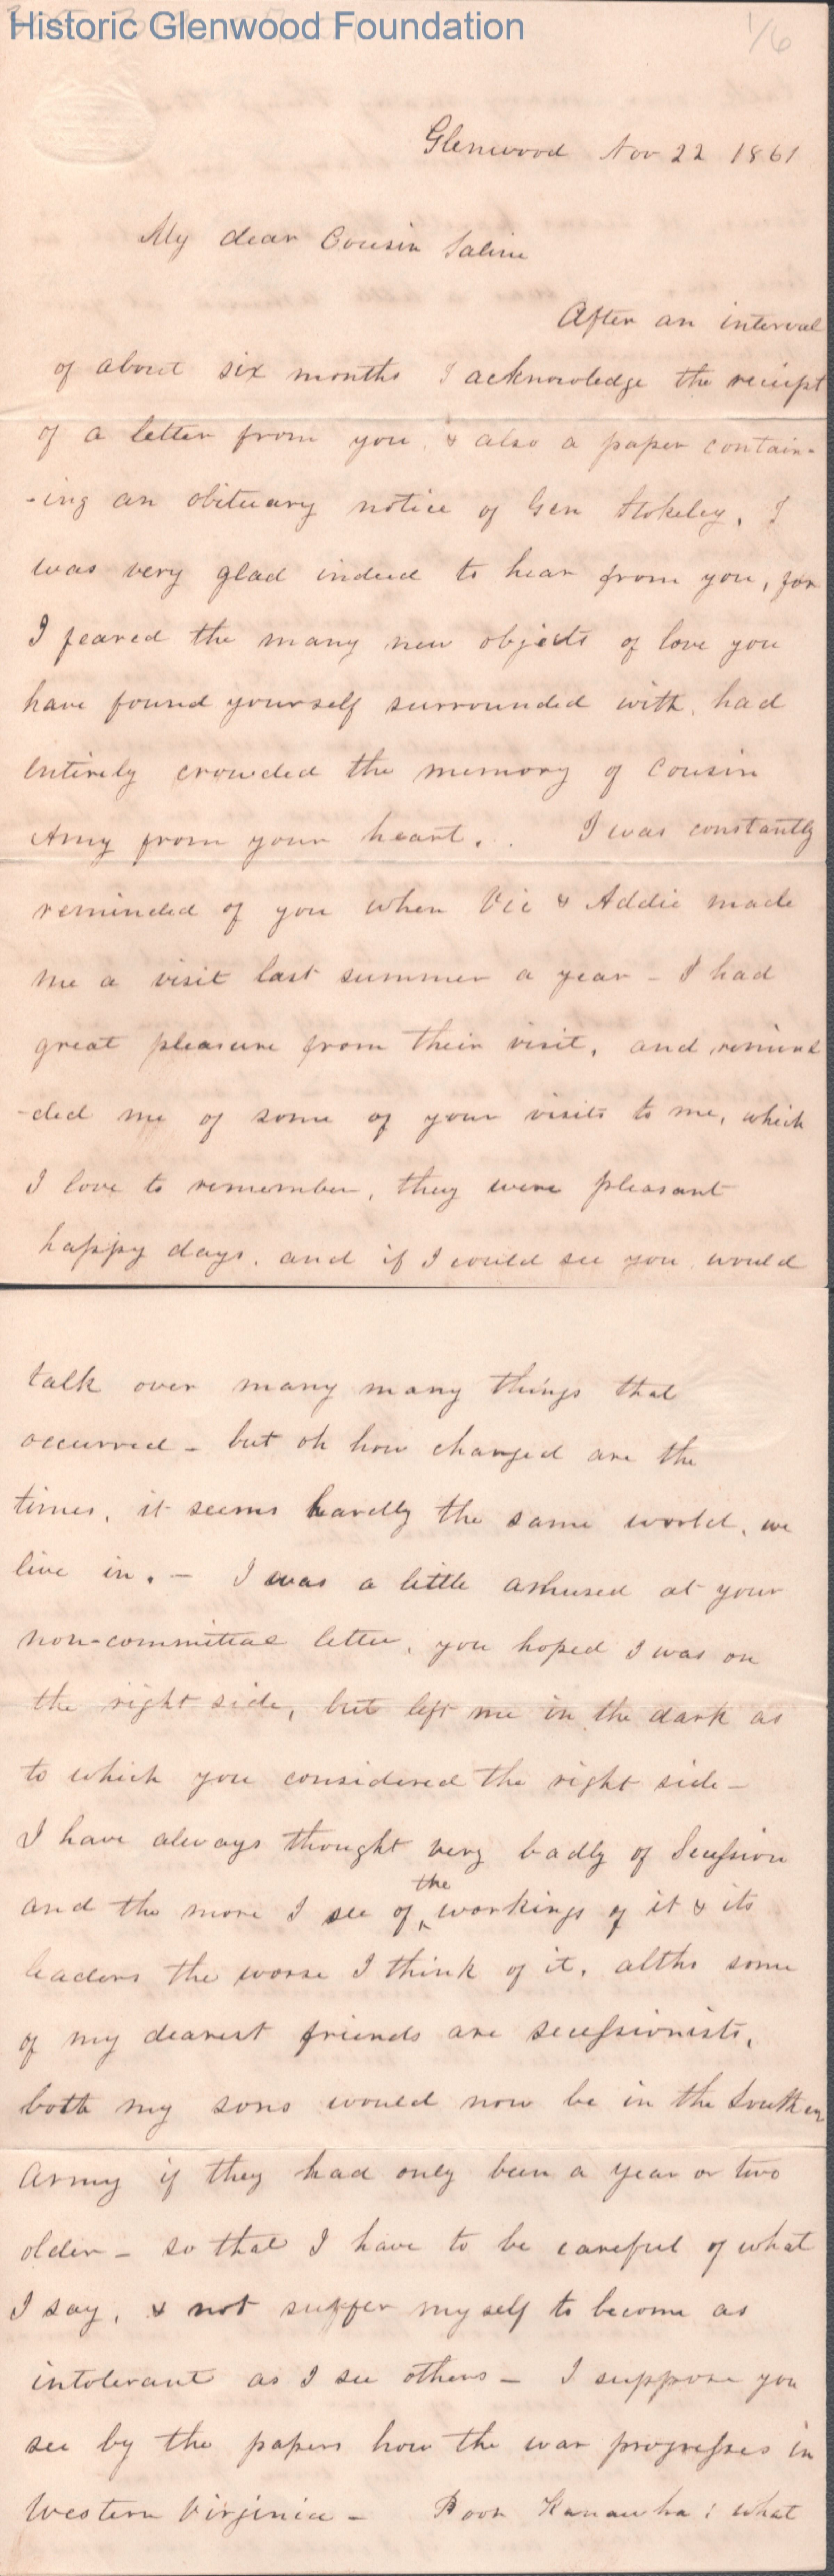 Historic Glenwood Foundation
1/6
Glenwood Nov 22 1861
My dear Cousin Saline
After an interval
of about six months I acknowledge the reciept
of a letter from you, & also a paper contain-
-ing an obituary notice of Gen Stokeley, I
was very glad indeed to hear from you, for
I feared the many new objects of love you
have found yourself surrounded with, had
entirely crowded the memory of Cousin
Amy from your heart. . I was constantly
reminded of you when Vic & Addie made
me a visit last summer a year - I had
great pleasure from their visit, and remind
-ded me of some of your visits to me, which
I love to remember, they were pleasant
happy days, and if I could see you would
talk over many many things that
occurred - but oh how changed are the
times, it seems hardly the same world, we
live in. - I was a little amused at your
non-committal letter, you hoped I was on
the right side, but left me in the dark as
to which you considered the right side -
I have always thought very badly of Secession
and the more I see of the workings of it & its
leaders the worse I think of it, altho some
of my dearest friends are secessionists,
both my sons would now be in the Southern
Army if they had only been a year or two
older - so that I have to be careful of what
I say, & not suffer myself to become as
intolerant as I see others - I suppose you
see by the papers how the war progresses in
Western Virginia - Poor Kanawha! what